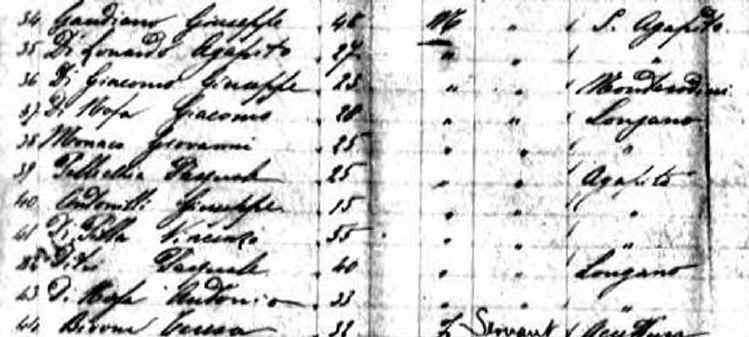 34 Gaudiano Giuseppe 48 M " S. Agapito
35 Di Lonardo Agapito 27 " " "
36 Di Giacomo Giuseppe 23 " " Monterodini
37 Di Rosa Giacomo 28 " " Longano
38 Monaco Giovanni 25 " " "
39 Pellecchia Pasquale 25 " " Agapito
40 Giuseppe 15 " " "
41 Di Pilla Vincenzo 35 " " "
42 Pasquale 40 " " Longano
43 Di Rosa Antonio 33 " " "
44 Teresa 32 F Servant